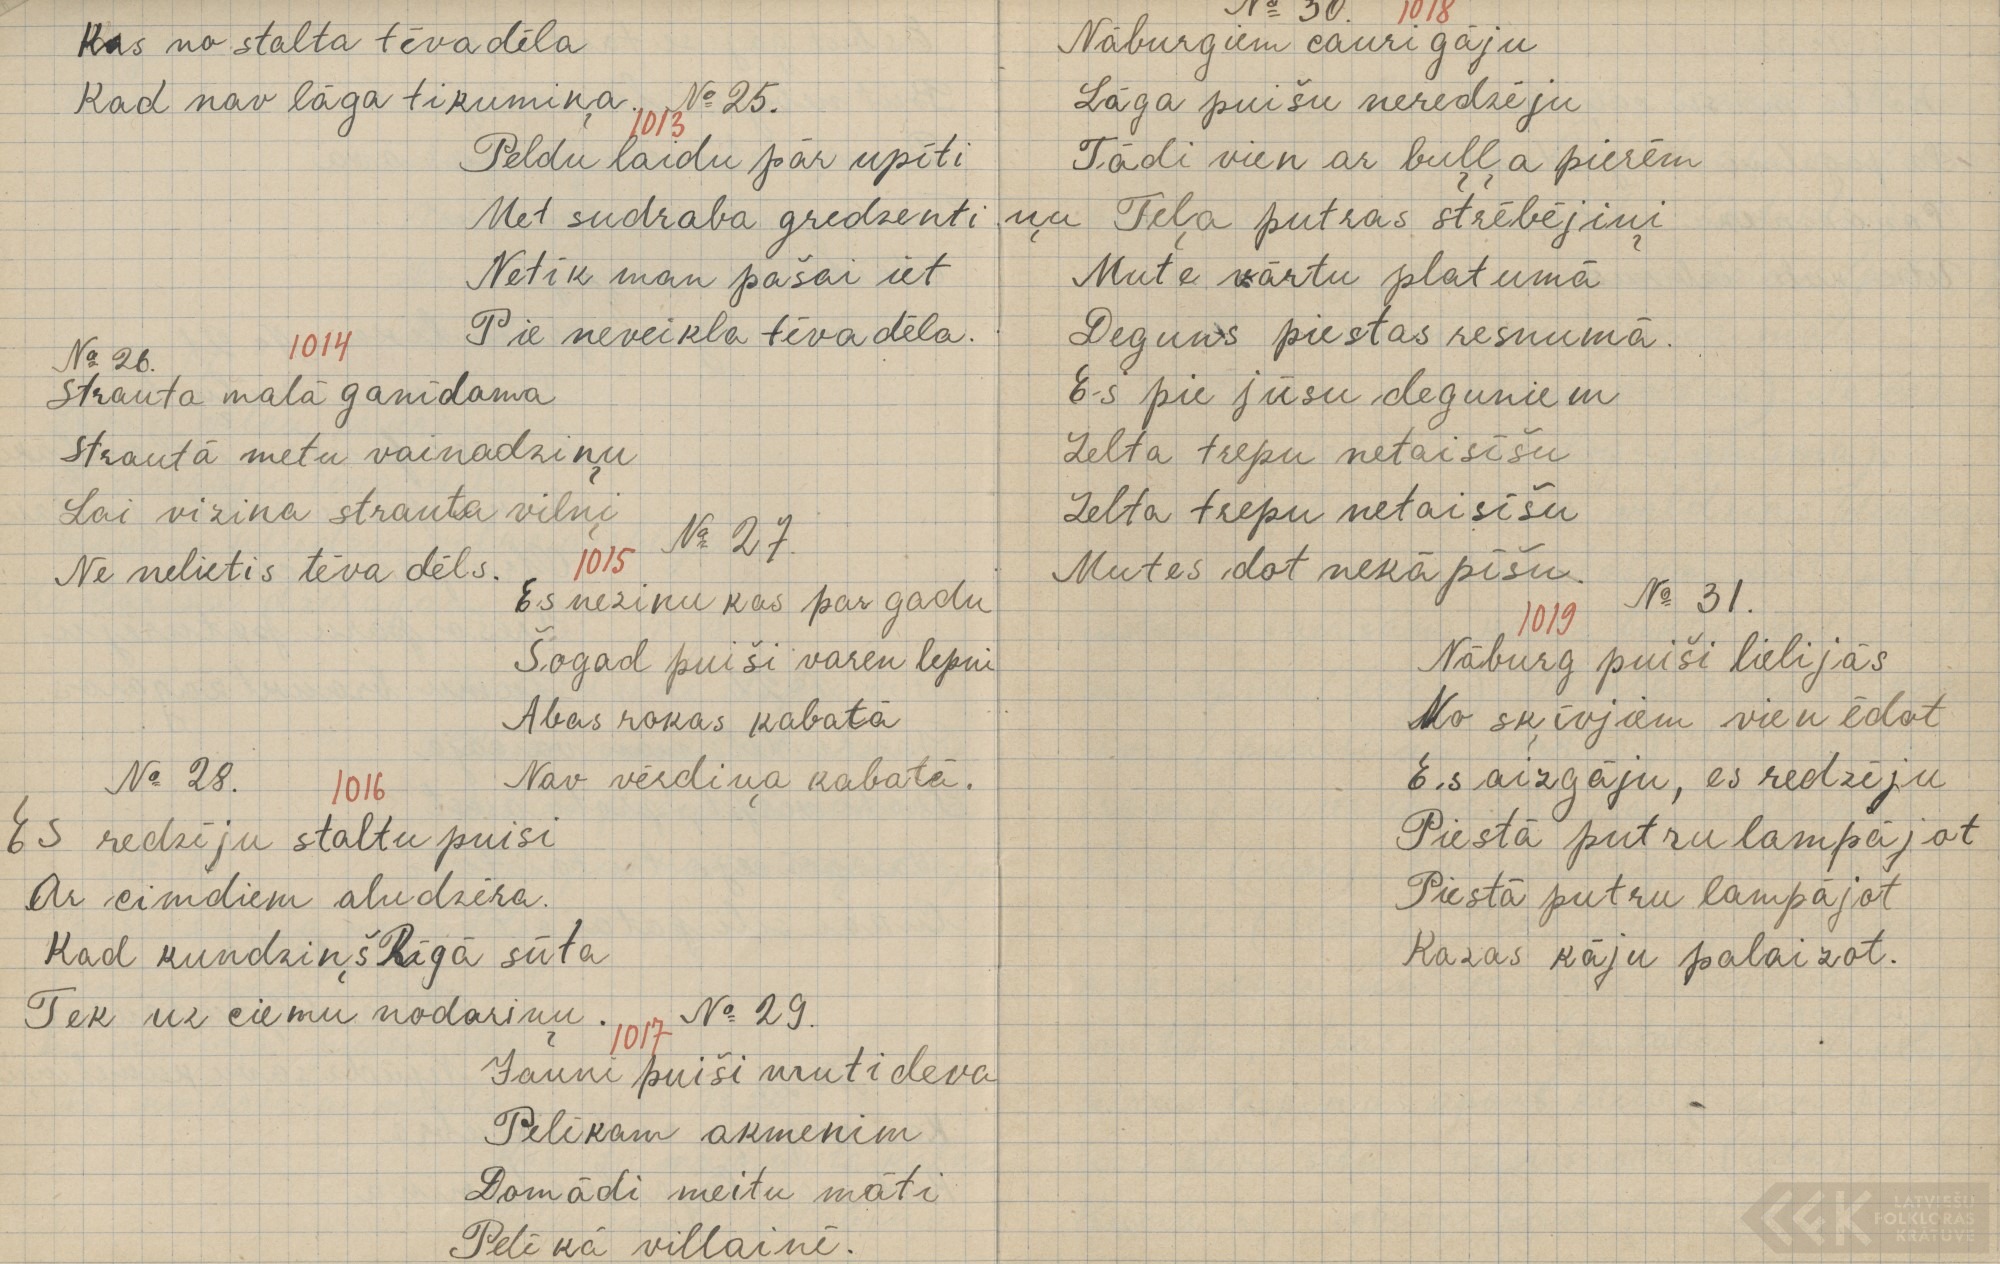 Kas no stalta tēva dēla
Kad nav lāga tikumiņa.
№ 25.
1013
Peldu laidu pār upīti
Met sudraba gredzentiņu
Netīk man pašai iet
Pie neveikla tēva dēla.
№ 26.
1014
Strauta malā ganīdama
Strautā metu vainadziņu
Lai vizina strauta vilņi
Ne nelietis tēva dēls.
№ 27.
1015
Es nezinu kas par gadu
Šogad puiši varen lepni
Abas rokas kabatā
Nav vērdiņa kabatā.
№ 28.
1016
Es redzēju staltu puisi
Ar cimdiem aludzēra.
Kad kundziņš Rīgā sūta
Tek uz ciemu nodariņu.
№ 29.
1017
Jauni puiši muti deva
Pelēkam akmenim
Domādi meitu māti
Pelēkā villainē.
№ 30.
1018
Nāburgiem cauri gāju
Lāga puišu neredzēju
Tādi vien ar buļļa pierēm
Teļa putras strēbējiņi
Mute vārtu platumā
Deguns piestas resnumā.
Es pie jūsu deguniem
Zelta trepu netaisīšu
Zelta trepu netaisīšu
Mutes dot nekāpīšu.
№ 31.
1019
Nāburg puiši lielijās
No sķīvjiem vien ēdot
Es aizgāju, es redzēju
Piestā putru lampājot
Piestā putru lampājot
Kazas kāju palaizot.
LATVIEŠU
FOLKLORAS
KRĀTUVE